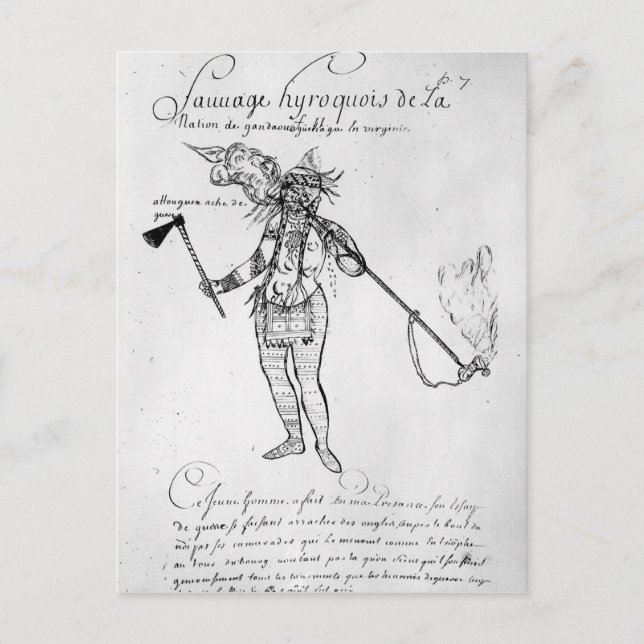 p. 7.
Sauuage hyroquois de La
Nation de gandaouaguehaga En virginie.
attouguen ache de
guerre
Ce Jeune homme a fait En ma Presance, son Essay
de guerre se faisant arracher des ongles, couper le bout du
nés par ses camarades qui Le menoient comme En triomphe
au tour du bourg, voulant par la quon vit
genereusement tous les tourments que les